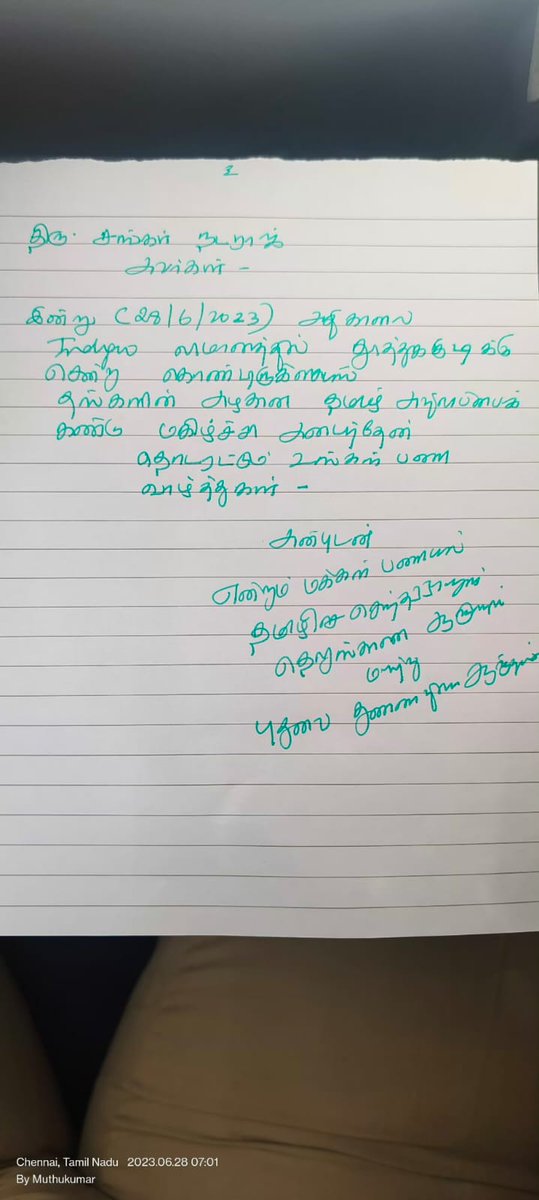 உ
திரு. சங்கர் நடராஜ்
அவர்கள் -
இன்று (28/6/2023) அதிகாலை
விமானத்தில் தூத்துக்குடிக்கு
சென்று கொண்டிருக்கையில்
தங்களின் அழகான தமிழ் அறிவிப்பைக்
கண்டு மகிழ்ச்சி அடைந்தேன்
தொடரட்டும் உங்கள் பணி
வாழ்த்துகள் -
அன்புடன்
என்றும் மக்கள் பணியில்
தமிழிசை சௌந்தரராஜன்
தெலுங்கானா ஆளுநர்
மற்றும்
புதுவை துணைநிலை ஆளுநர்
Chennai, Tamil Nadu 2023.06.28 07:01
By Muthukumar